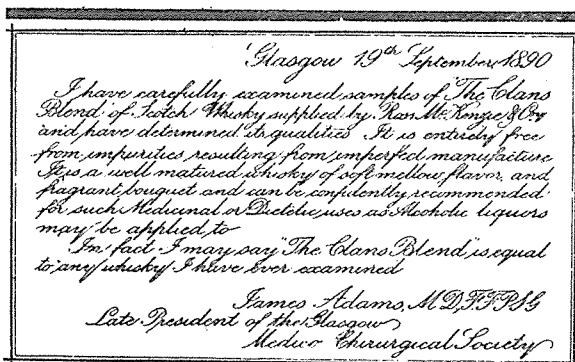 Glasgow 19th September, 1890
I have carefully examined samples of "The Clans
Blend" of Scotch Whisky supplied by Ross McKenzie & Coy
and have determined its qualities. It is entirely free
from impurities resulting from imperfect manufacture
It is a well matured whisky of soft mellow flavor, and
fragrant bouquet and can be confidently recommended
for such Medicinal or Dietetic uses as Alcoholic liquors
may be applied to
In fact I may say "The Clans Blend" is equal
to any whisky I have ever examined
James Adams, M.D., F.F.P.S.G
Late President of the Glasgow
Medico Chirurgical Society